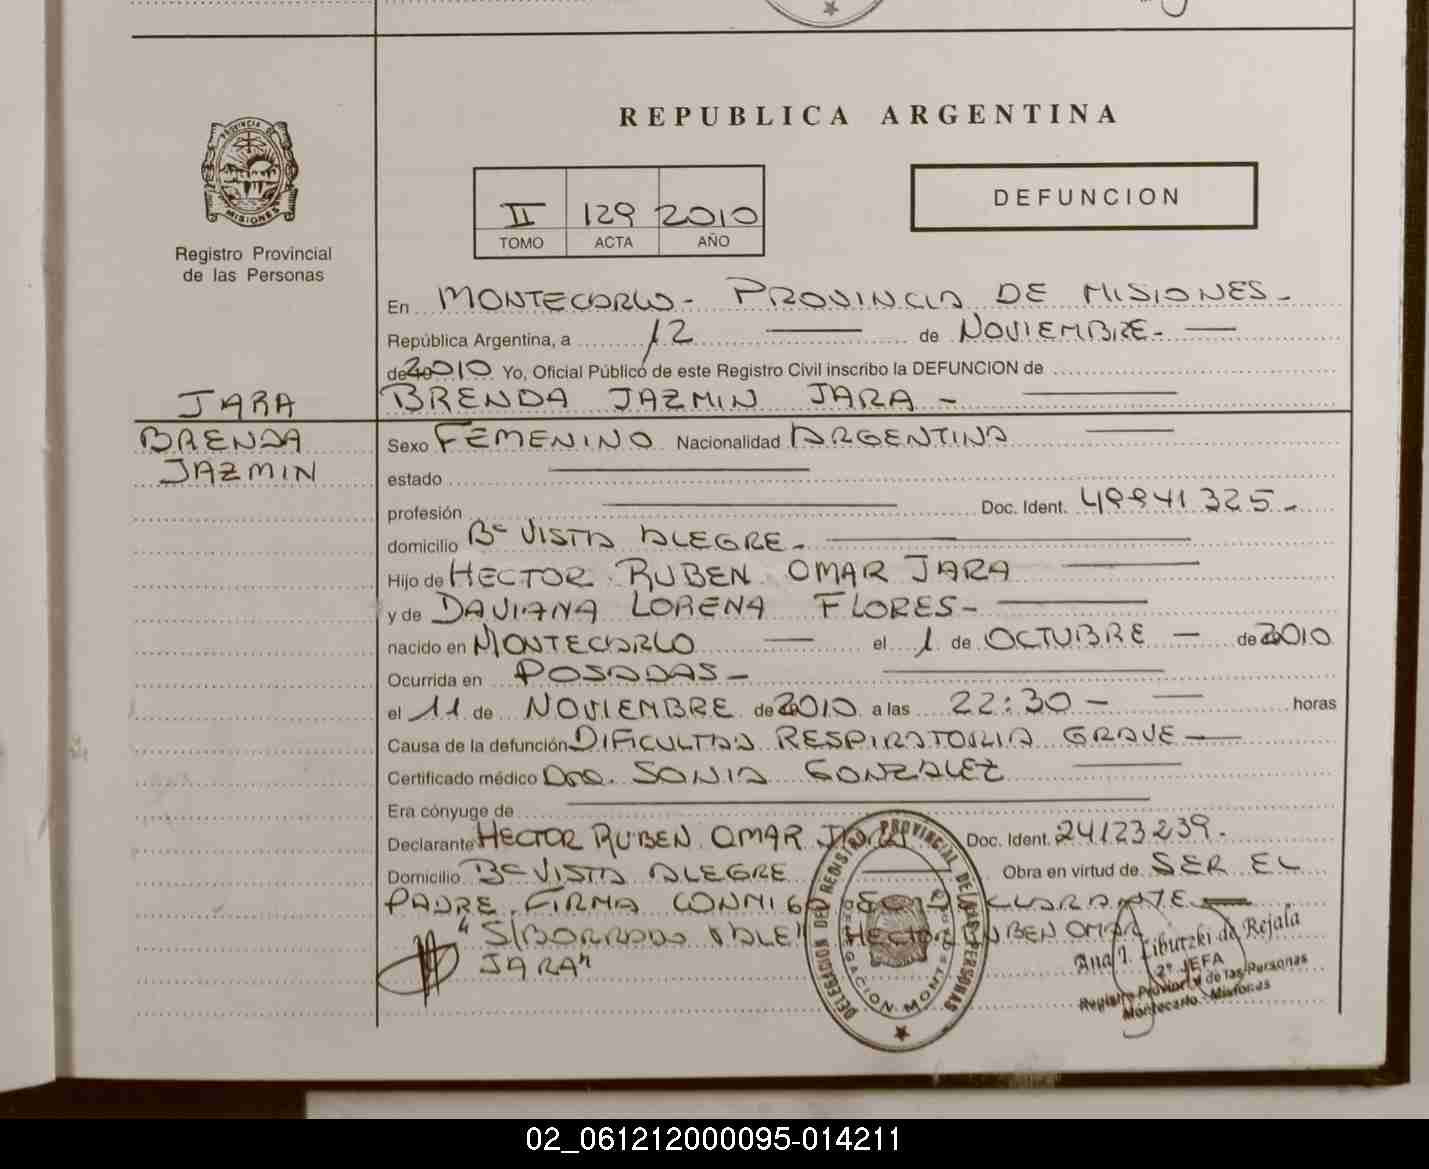 REPUBLICA ARGENTINA
PROVINCIA DE
MISIONES
Registro Provincial
de las Personas
II 129 2010
TOMO ACTA AÑO
DEFUNCION
En MONTECARLO - PROVINCIA DE MISIONES -
República Argentina, a 12 de NOVIEMBRE -
de 2010 Yo, Oficial Público de este Registro Civil inscribo la DEFUNCION de
JARA
BRENDA JAZMIN JARA -
BRENDA
JAZMIN
Sexo FEMENINO Nacionalidad ARGENTINA
estado
profesión Doc. Ident. 49941325 -
domicilio Bº VISTA ALEGRE -
Hijo de HECTOR RUBEN OMAR JARA
y de DAVIANA LORENA FLORES -
nacido en MONTECARLO el 1 de OCTUBRE - de 2010
Ocurrida en POSADAS -
el 11 de NOVIEMBRE de 2010 a las 22:30 - horas
Causa de la defunción DIFICULTAD RESPIRATORIA GRAVE -
Certificado médico Dra. SONIA GONZALEZ
Era cónyuge de
Declarante HECTOR RUBEN OMAR JARA Doc. Ident. 24123239.
Domicilio Bº VISTA ALEGRE Obra en virtud de SER EL
PADRE. FIRMA CONMIGO EL DECLARANTE
"S/BORRADO VALE" HECTOR RUBEN OMAR
JARA"
DELEGACION DEL REGISTRO PROVINCIAL DE LAS PERSONAS
DELEGACION MONTECARLO
Ana I. Libutzki de Rejala
2º JEFA
Registro Provincial de las Personas
Montecarlo - Misiones
02_061212000095-014211